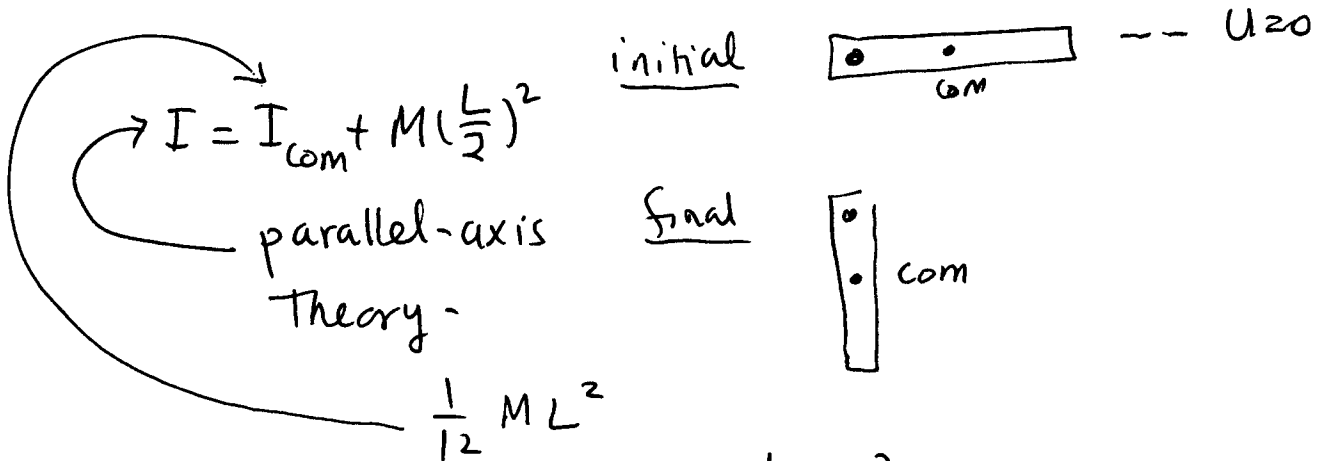 initial
-- U=0
com
I = I_com + M(L/2)^2
parallel-axis
Theory-
final
com
1/12 ML^2